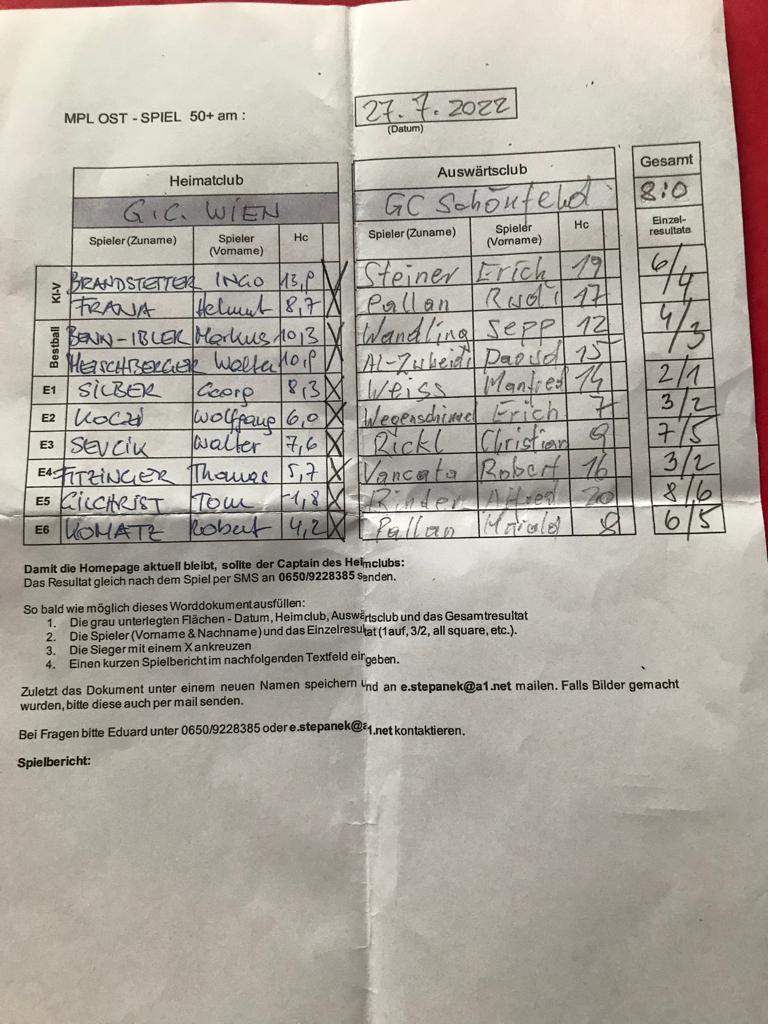 MPL OST - SPIEL 50+ am : 27.7.2022
(Datum)
Heimatclub Auswärtsclub Gesamt
G.C. WIEN GC Schönfeld 8:0
Spieler (Zuname) Spieler (Vorname) Hc Spieler (Zuname) Spieler (Vorname) Hc Einzel-resultate
Kl-V BRANDSTETTER INGO X Steiner Erich 19 6/4
FRANA Helmut 8,7 X Pallan Rudi 17
Bestball BENN-IBLER Markus 10,3 X Wandling Sepp 12 4/3
HEISCHBERGER Walter X Al-Zubeidi Daoud 15
E1 SILBER Georg 8,3 X Weiss Manfred 14 2/1
E2 KOCZI Wolfgang 6,0 X Wegenschimel Erich 7 3/2
E3 SEVCIK Walter 7,6 X Rickl Christian 9 7/5
E4 FITZINGER Thomas 5,7 X Vancata Robert 16 3/2
E5 GILCHRIST Tom -1,8 X Binder Alfred 20 8/6
E6 KOMATZ Robert 4,2 X Pallan Harald 8 6/5
Damit die Homepage aktuell bleibt, sollte der Captain des Heimclubs:
Das Resultat gleich nach dem Spiel per SMS an 0650/9228385 senden.
So bald wie möglich dieses Worddokument ausfüllen:
1. Die grau unterlegten Flächen - Datum, Heimclub, Auswärtsclub und das Gesamtresultat
2. Die Spieler (Vorname & Nachname) und das Einzelresultat (1auf, 3/2, all square, etc.).
3. Die Sieger mit einem X ankreuzen
4. Einen kurzen Spielbericht im nachfolgenden Textfeld eingeben.
Zuletzt das Dokument unter einem neuen Namen speichern und an e.stepanek@a1.net mailen. Falls Bilder gemacht
wurden, bitte diese auch per mail senden.
Bei Fragen bitte Eduard unter 0650/9228385 oder e.stepanek@a1.net kontaktieren.
Spielbericht: